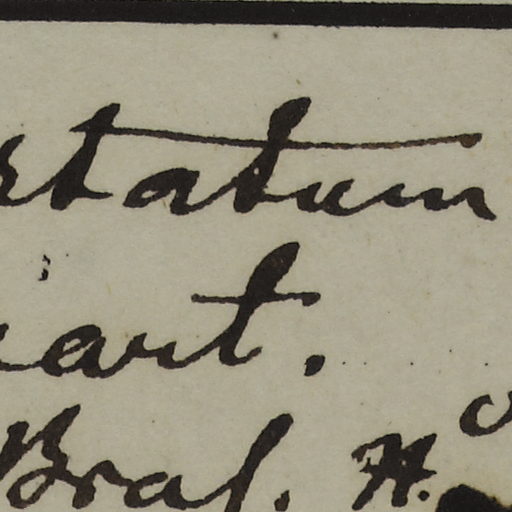 statum
art.
Bras. H.